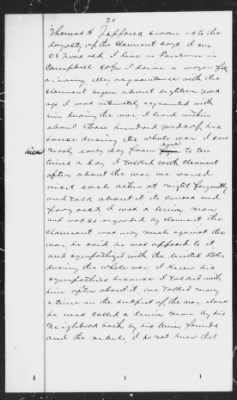 20
Thomas H Jefford sworn as to the
loyalty of the Claimant says I am
years old I live in
Campbell
driving My acquaintance with the
Claimant began about eighteen years
ago I was intimately acquainted with
him during the war I lived within
about three hundred yards of his
house during the whole war I saw
nearly every day from to ten
times a day I talked with claimant
often about the war we would
visit each other at night frequently
and talk about it its causes and
I was a Union man
and so regarded by claimant The
Claimant was very much against the
war he said he was opposed to it
and sympathized with the United States
during the whole war I knew his
sympathies because I talked with
him often about it we talked many
a time on the subject of the war alone
he was called a Union man by his
neighbors both by his Union friends
and the rebels I do not know that